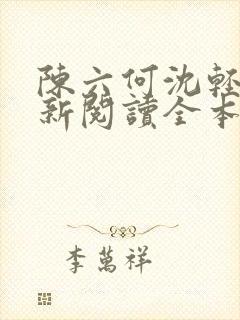 陳六何沈輕
新閱讀全本
李萬祥